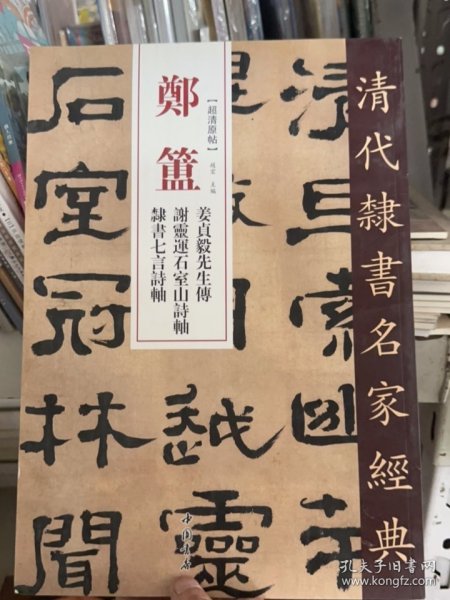 清代隸書名家經典
【超清原帖】
鄭簠
主編
姜貞毅先生傳
謝靈運石室山詩軸
隸書七言詩軸
清旦索幽
越靈
石室冠林聞
中国书店
孔夫子旧书网
www.kongfz.com